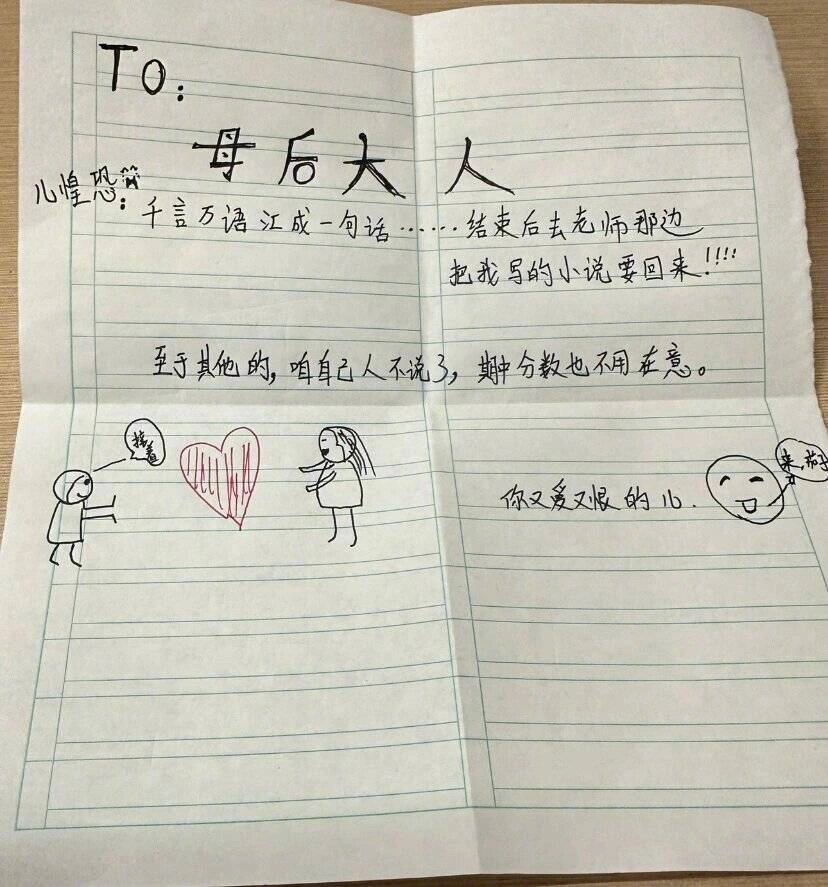 To:
母后大人
儿惶恐:
千言万语 江成一句话……结束后去老师那边
把我写的小说要回来!!!!
至于其他的, 咱自己人不说了, 期中分数也不用在意。
接着
你又爱又恨的儿.
来,茄子